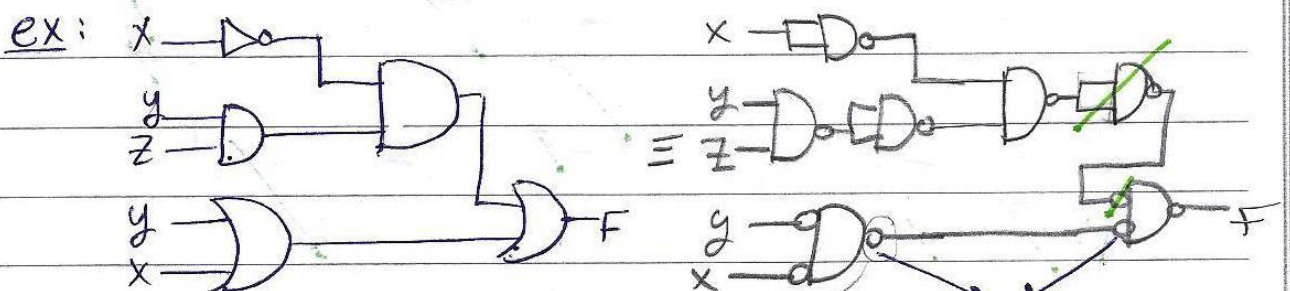 ex: X
y
Z
y
X
F
≡
X
y
Z
y
X
F